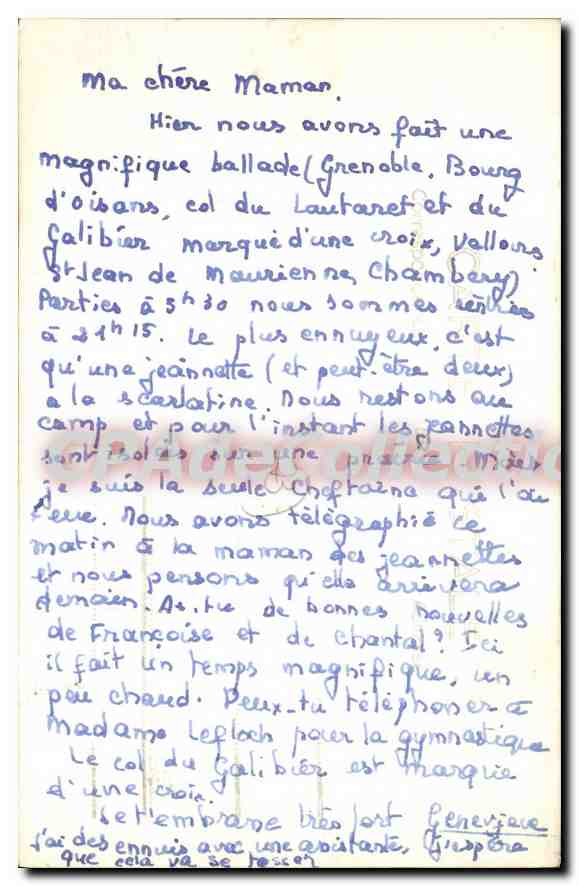 Ma chère Maman.
Hier nous avons fait une
magnifique ballade (Grenoble, Bourg
d'oisans, col du Lautaret et du
Galibier marqué d'une croix, Valloire
St Jean de Maurienne, Chambéry)
Parties à 5h30 nous sommes rentrées
à 21h15. Le plus ennuyeux, c'est
qu'une jeannette (et peut-être deux)
a la scarlatine. Nous restons au
camp et pour l'instant les jeannettes
sont isolées sur une prairie. Mais
je suis la seule cheftaine qui l'ai
eue. Nous avons télégraphié ce
matin à la maman des jeannettes
et nous pensons qu'elle arrivera
demain. As-tu de bonnes nouvelles
de Françoise et de Chantal? Ici
il fait un temps magnifique, un
peu chaud. Peux-tu téléphoner à
Madame Lefloch pour la gymnastique
Le col du Galibier est marqué
d'une croix.
Je t'embrasse très fort Geneviève
J'ai des ennuis avec une assistante, J'espère
que cela va se tasser
CPADeCollection